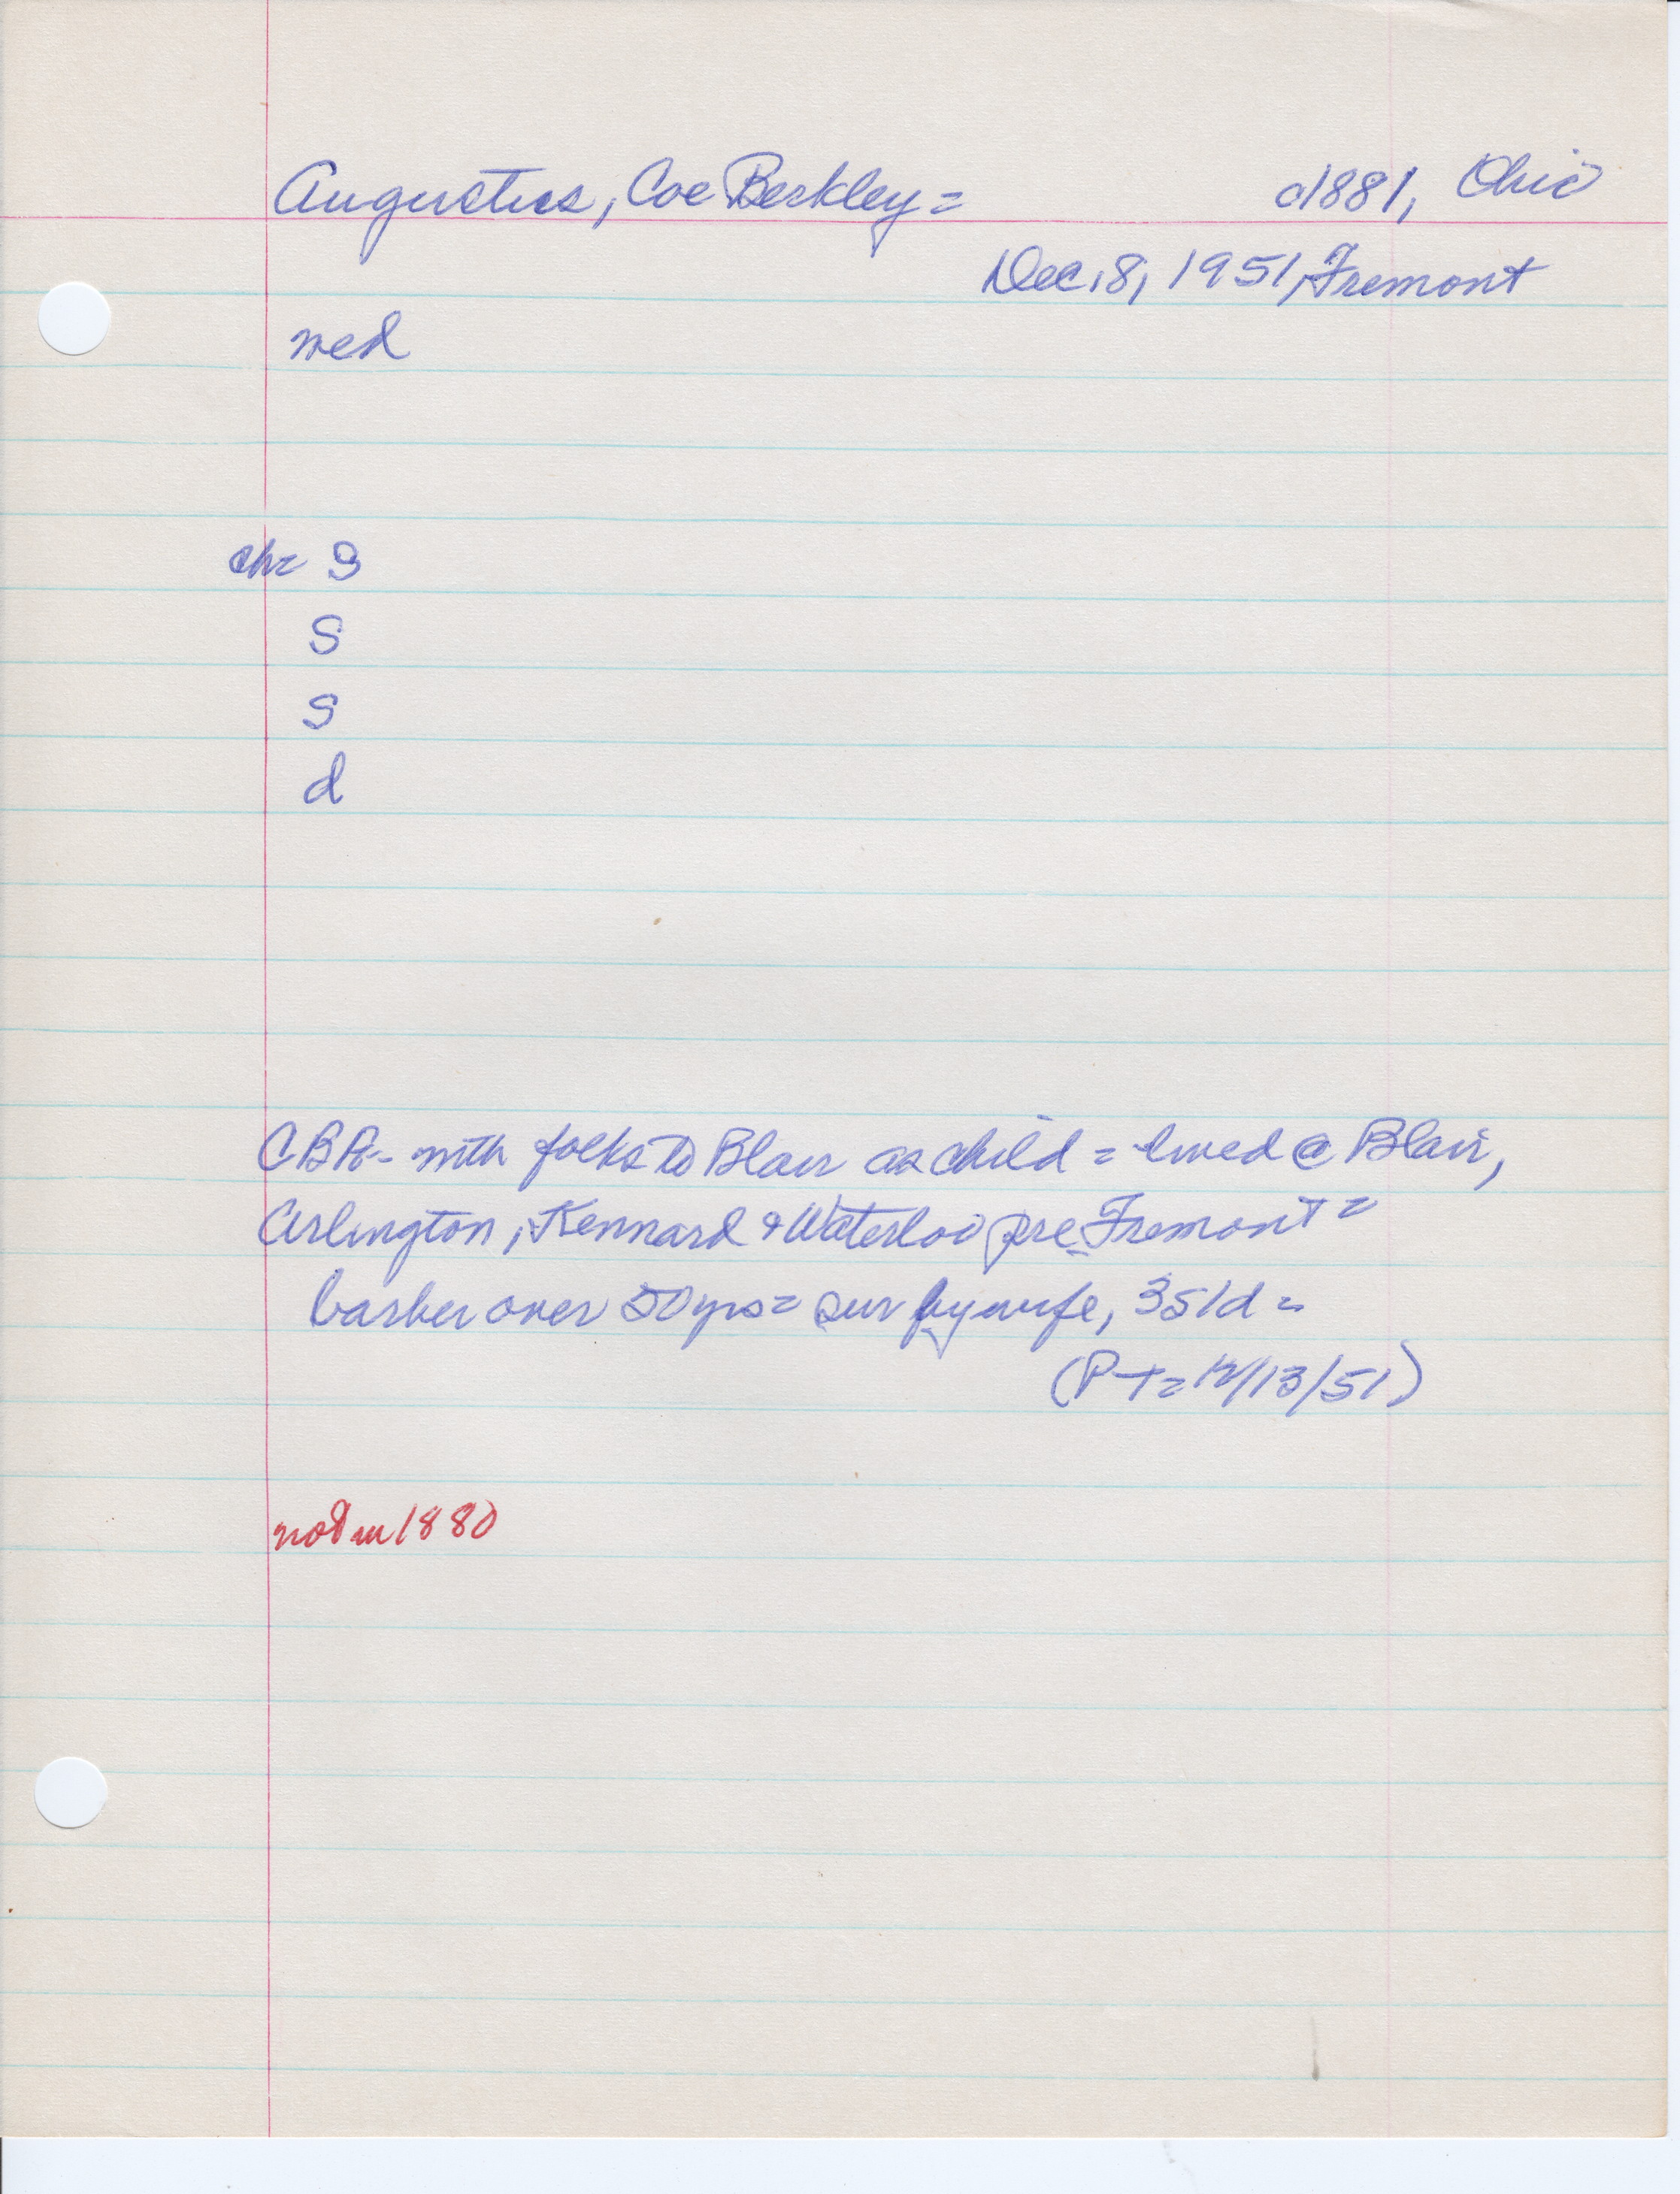 Augustus, Coe Berkley = c1881, Ohio
Dec. 8, 1951, Fremont
wed
ch = S
S
S
d
CBA - with folks to Blair as child = lived @ Blair,
Arlington, Kennard & Waterloo pre Fremont =
barber over 50 yrs = sur by wife, 3S 1d =
(PT = 12/13/51)
not in 1880